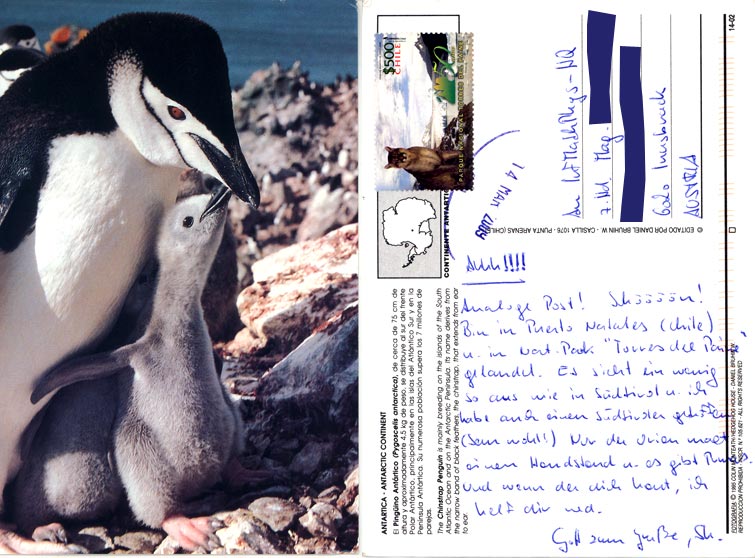 ANTARTICA - ANTARCTIC CONTINENT
El Pingüino Antártico (Pygoscelis antarctica), de cerca de 75 cm de
altura y aproximadamente 4.5 kg de peso, se distribuye al sur del frente
Polar Antártico, principalmente en las islas del Atlántico Sur y en la
Península Antártica. Su numerosa población supera los 7 millones de
parejas.
The Chinstrap Penguin is mainly breeding on the islands of the South
Atlantic Ocean and on the Antarctic Peninsula. Its name derives from
the narrow band of black feathers, the chinstrap, that extends from ear
to ear.
CONTINENTE ANTARTICO
$500
CHILE
14 MAR
Ahhh!!!!
Analoge Post! Schööööön!
Bin in Puerto Natales (Chile)
u. im Nat. Park "Torres del Paine"
gelandet. Es sieht ein wenig
so aus wie in Südtirol u. ich
habe auch einen Südtiroler getroffen
(Sehr wohl!) Nur der Orion macht
einen Handstand u. es gibt Pumas.
Und wann der dich haut, ich
helf dir ned.
Gott zum Gruße, Sh.
7. Hd. Mag.
6020 Innsbruck
AUSTRIA
© EDITADO POR DANIEL BRUHIN W. - CASILLA 1076 - PUNTA ARENAS (CHILE)
FOTOGRAFIA: © 1995 COLIN MONTEATH HEDGEHOG HOUSE - DANIEL BRUHIN
REPRODUCCION PROHIBIDA - INSCR. N° 105.621 - ALL RIGHTS RESERVED
14-02